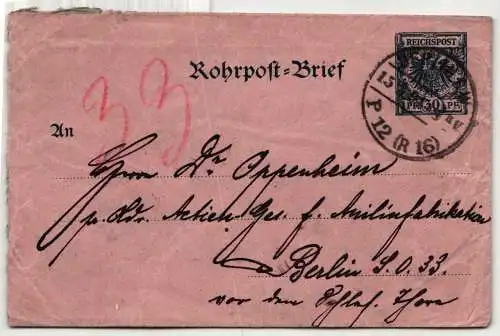 REICHSPOST
PF. 30 PF.
P 12 (R 16)
Rohrpost-Brief
33
An
Herrn Dr Oppenheim
p. Adr. Actien Ges. f. Anilinfabrikation
Berlin S.O. 33.
vor dem Schles. Thore